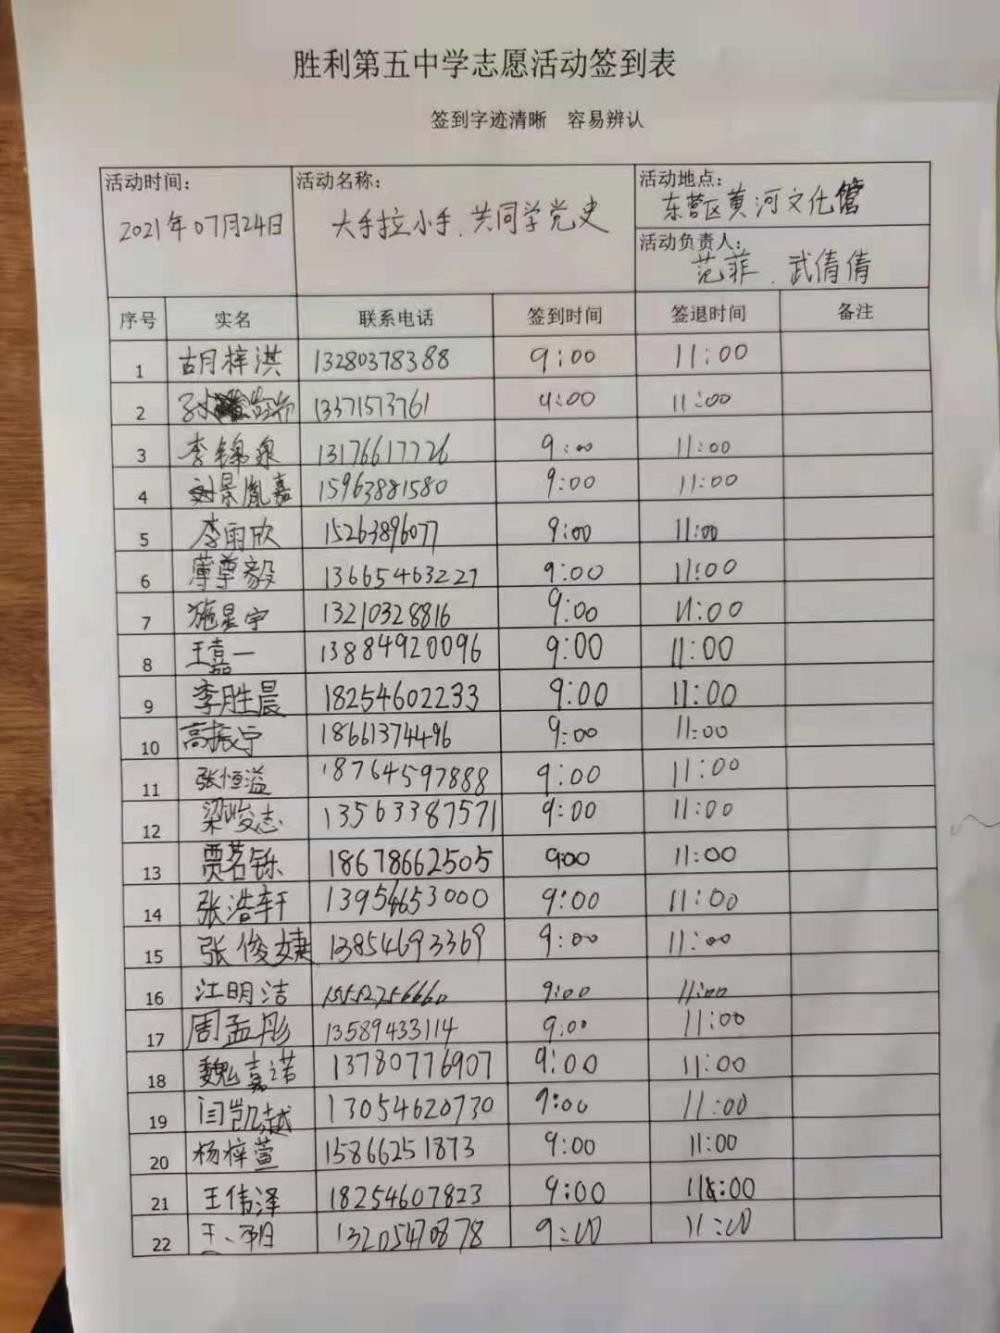 胜利第五中学志愿活动签到表
签到字迹清晰 容易辨认
活动时间: 2021年07月24日
活动名称: 大手拉小手、共同学党史
活动地点: 东营区黄河文化馆
活动负责人: 范菲、武倩倩
序号 实名 联系电话 签到时间 签退时间 备注
1 胡梓洪 13280378388 9:00 11:00
2 13371573761 9:00 11:00
3 李锦泉 13176617726 9:00 11:00
4 刘景胤嘉 15963881580 9:00 11:00
5 李雨欣 15263896077 9:00 11:00
6 薄尊毅 13665463227 9:00 11:00
7 施星宇 13210328816 9:00 11:00
8 王嘉一 13884920096 9:00 11:00
9 李胜晨 18254602233 9:00 11:00
10 高振宇 18661374496 9:00 11:00
11 张恒溢 18764597888 9:00 11:00
12 梁峻志 13563387571 9:00 11:00
13 贾茗铄 18678662505 9:00 11:00
14 张浩轩 13954653000 9:00 11:00
15 张俊婕 13854693369 9:00 11:00
16 江明洁 9:00 11:00
17 周孟彤 13589433114 9:00 11:00
18 魏嘉诺 13780776907 9:00 11:00
19 闫凯越 13054620730 9:00 11:00
20 杨梓萱 15866251873 9:00 11:00
21 王伟泽 18254607823 9:00 11:00
22 13205470878 9:00 11:00